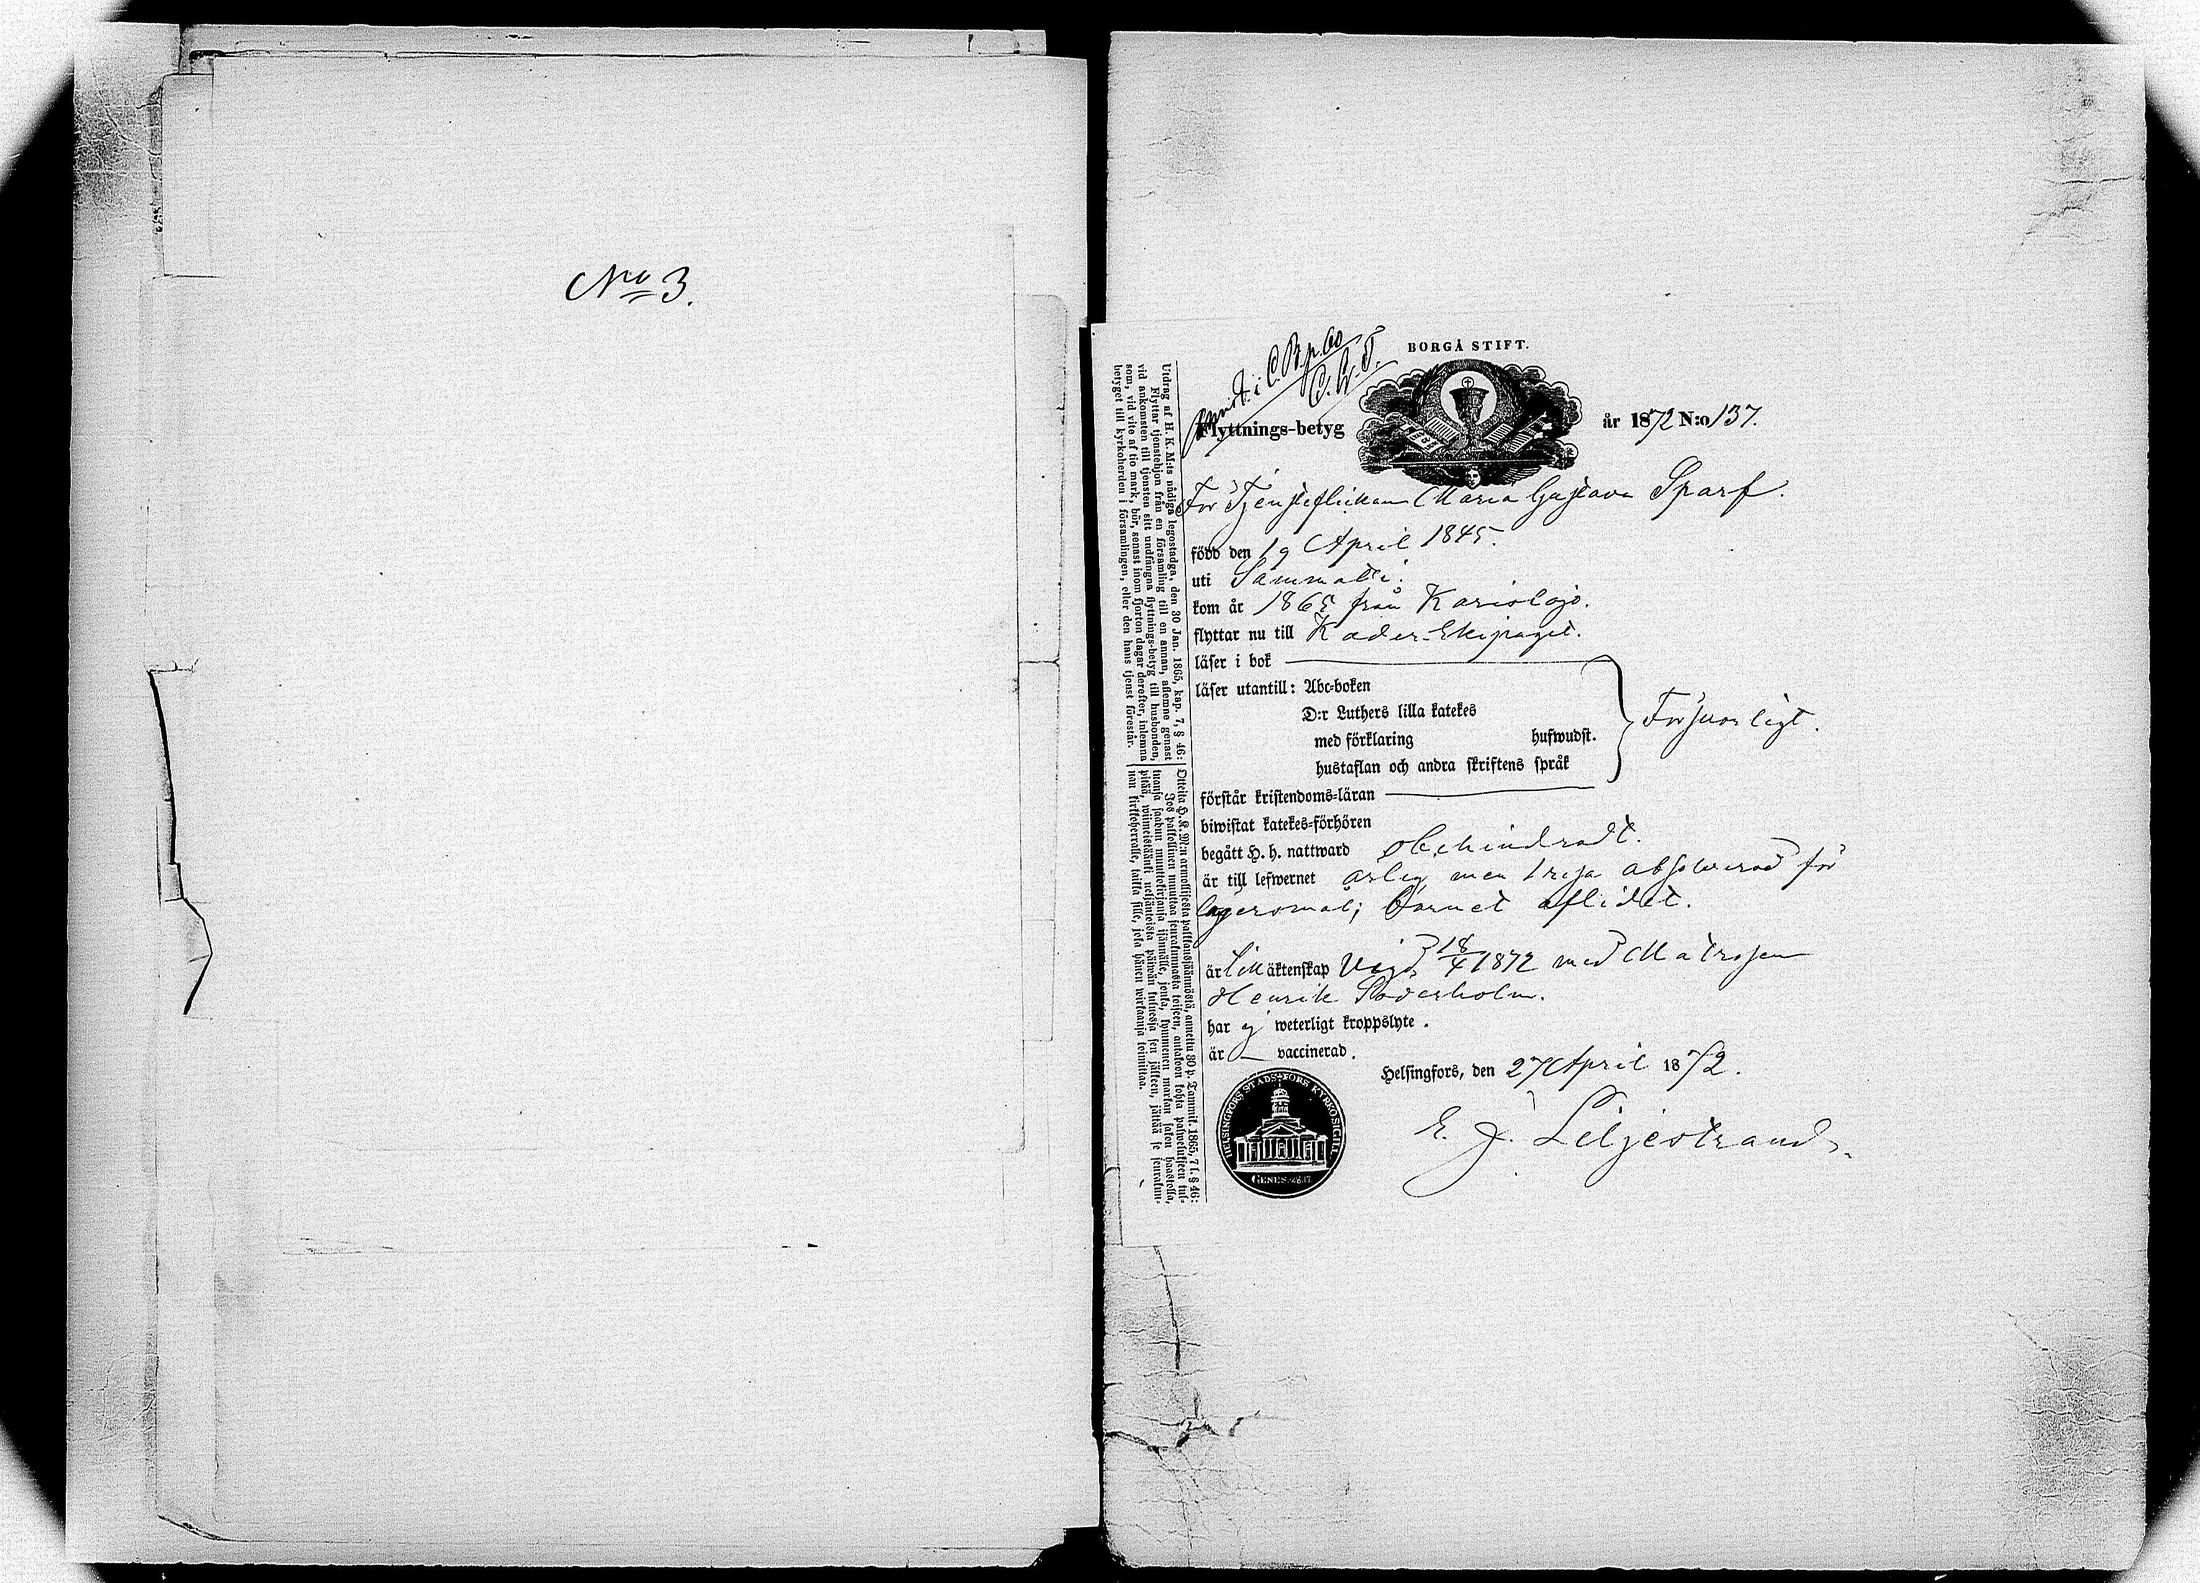 No 3.
BORGÅ STIFT.
i C. B. p. 60
Flyttnings-betyg
år 1872 N:o 137.
För Tjensteflickan Maria Gustava Sparf.
född den 19 April 1845.
uti Sammatti.
kom år 1865 från Karislojo.
flyttar nu till Kader-Ekipaget.
läser i bok
läser utantill: Abc-boken
D:r Luthers lilla katekes
med förklaring huswudst.
hustaflan och andra skriftens språk
Försvarligt.
förstår kristendoms-läran
biwistat katekes-förhören
begått H. h. nattward obehindradt.
är till lefwernet ärlig men 1 resa absolverad för
lägersmål; barnet aflidet.
är till äktenskap Vigd 18/4 1872 med Matrosen
Henrik Söderholm.
har ej weterligt kroppslyte.
är — vaccinerad.
Helsingfors, den 27 April 1872.
E. J. Liljestrand.
HELSINGFORS STADS-FÖRS KYRKO SIGILL
GENES.
Utdrag af H. K. M:ts nådiga legostadga, den 30 Jan. 1865, kap. 7, § 46:
Flyttar tjenstehjon från en församling till en annan, aflemne genast
vid ankomsten till tjensten sitt undfångna flyttnings-betyg till husbonden,
som, vid vite af tio mark, bör, senast inom fjorton dagar derefter, inlemna
betyget till kyrkoherden i församlingen, eller den hans tjenst förestår.
Otteita H. K. M:n armollisesta palkkaussäännöstä, annettu 30 p. Tammik. 1865, 7 l. § 46:
Jos palkollinen muuttaa seurakunnasta toiseen, antakoon kohta palwelukseen tul-
tuansa saadun muuttokirjansa isännälle, jonka, kymmenen markan sakon haastolla,
pitää, wiimeistäänki neljäntoista päiwän kuluessa sen jälkeen, jättää se seurakun-
nan kirkkoherralle, taikka sille, joka hänen wirkaansa toimittaa.